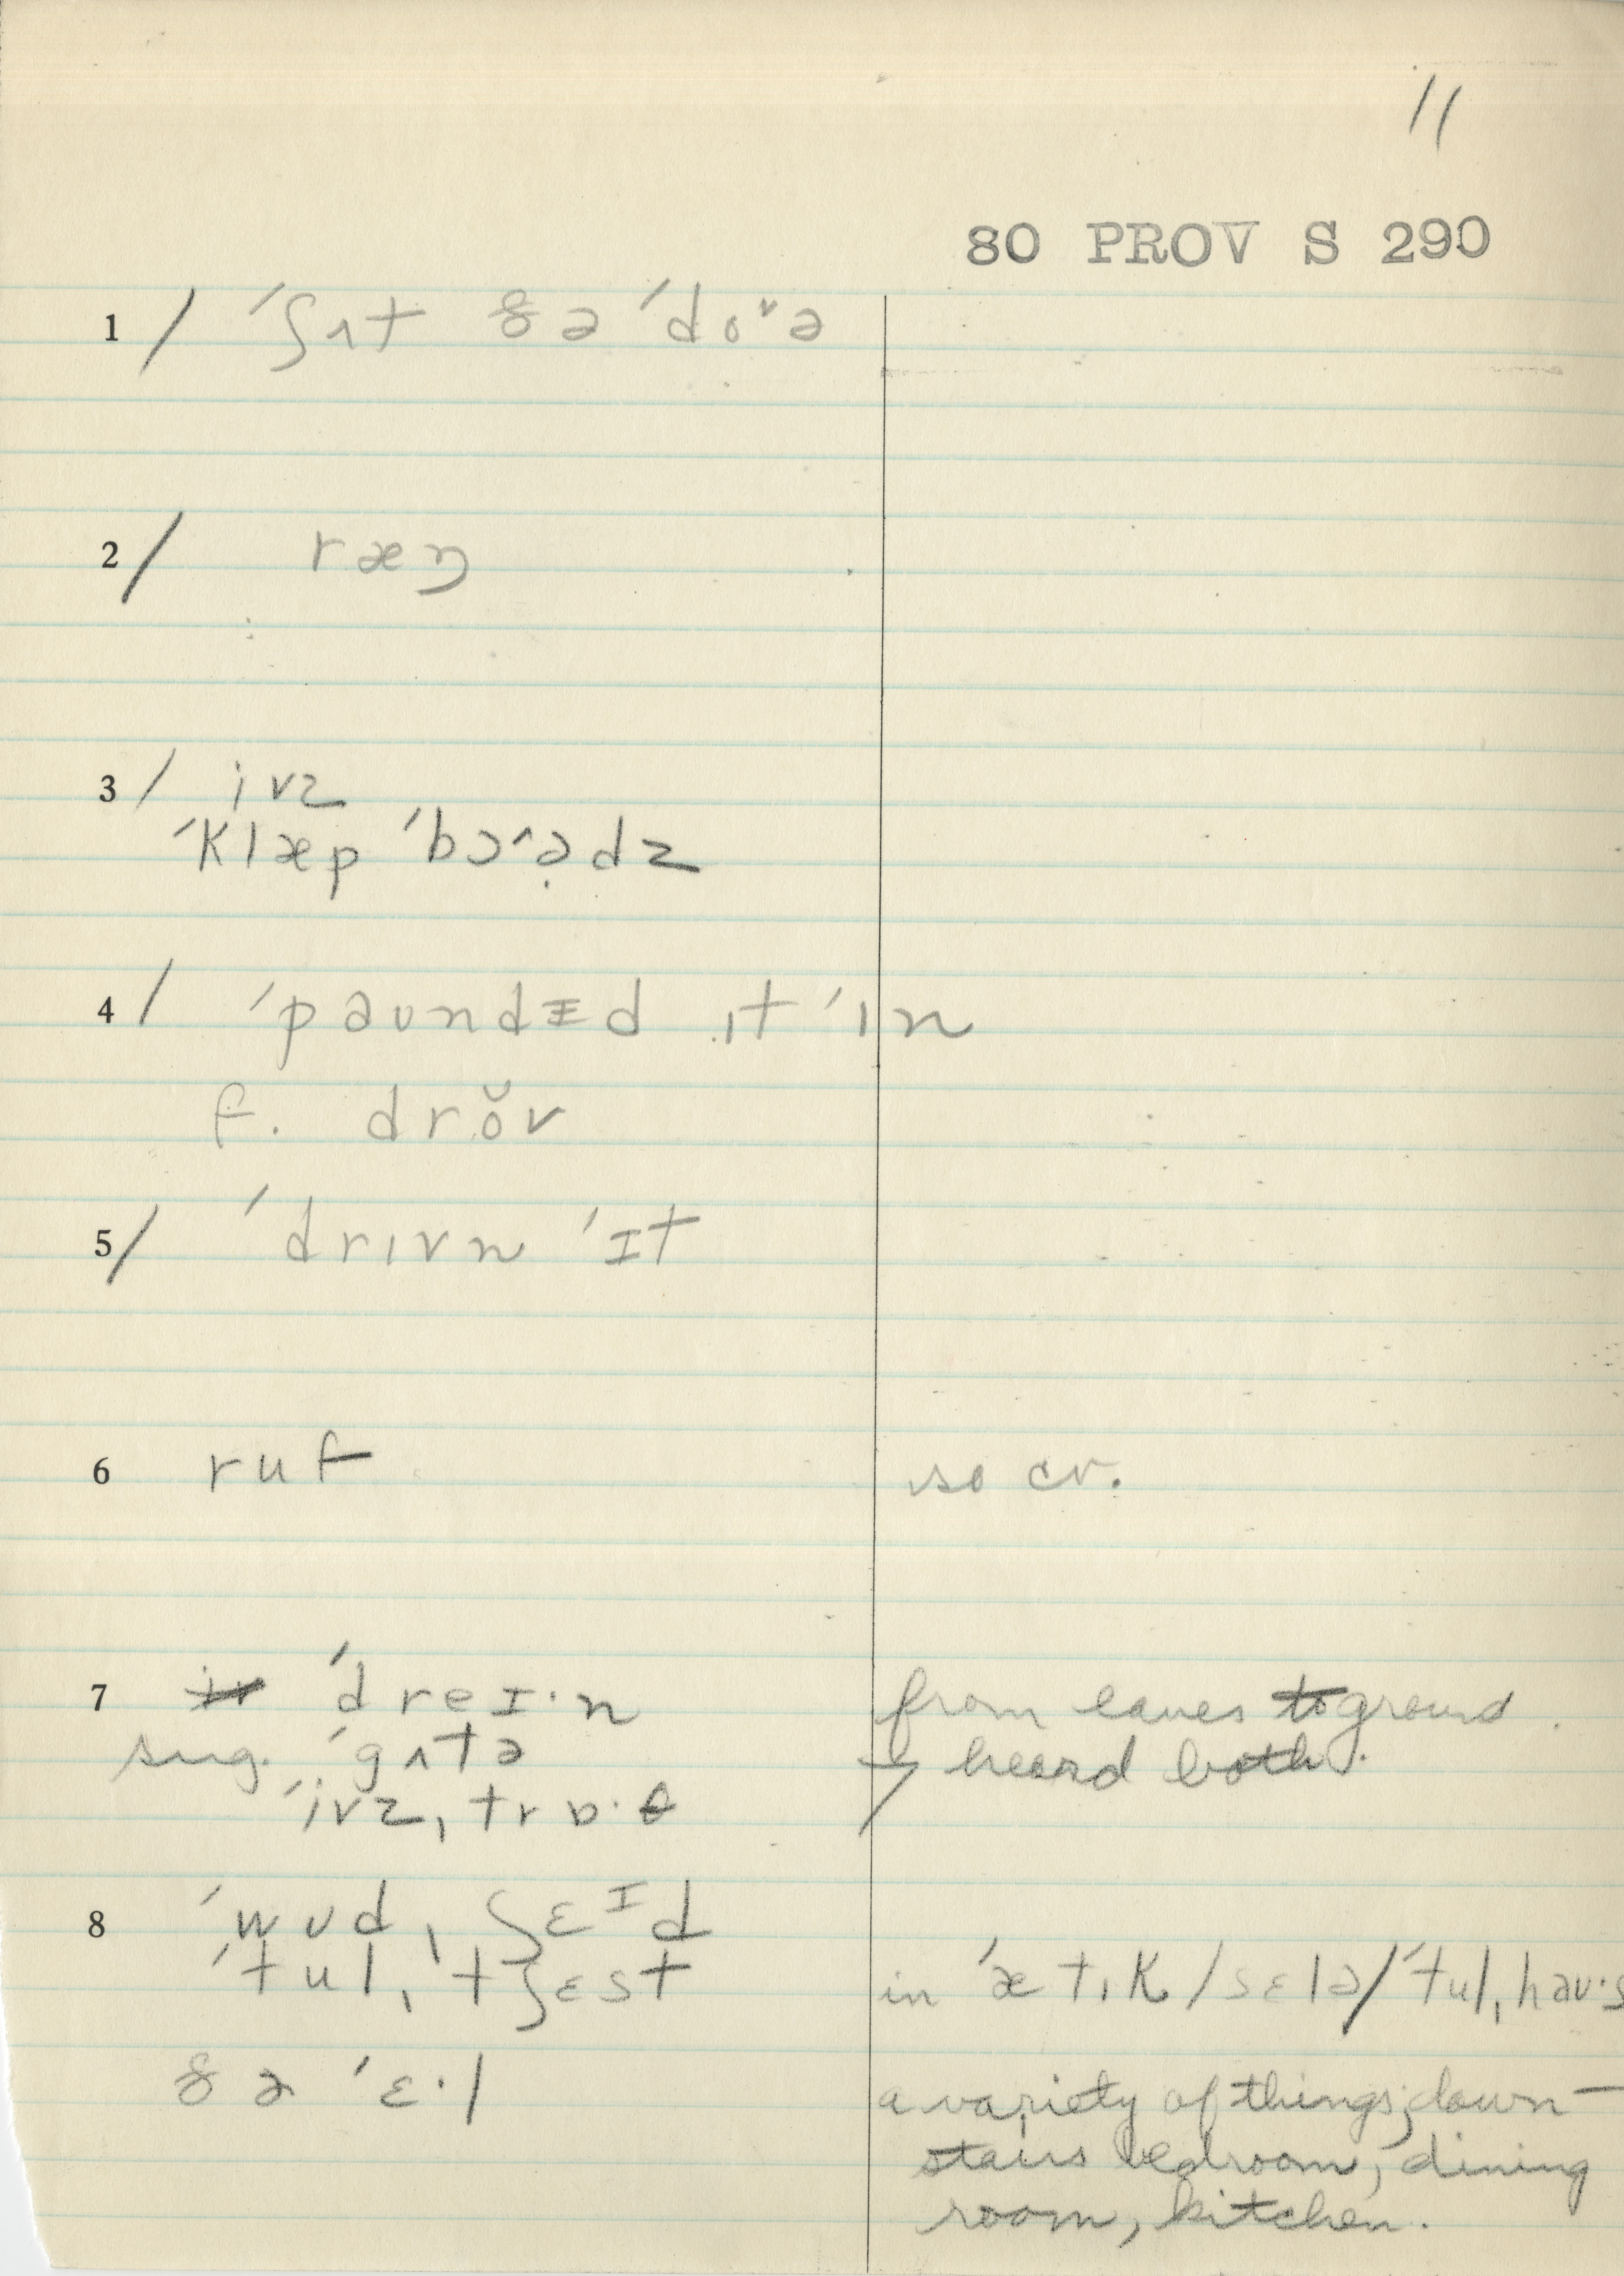 11
80 PROV S 290
1/ ´ʃʌt ðə ´doˇə
2/ ræŋ
3/ ivz
´klæp ´bɔ^ə̣dz
4/ ´paʊndɪd ˌɪt ´ɪn
f. drŏv
5/ ´drɪvn ´ɪt
6 ruf so cv.
7 ´dreɪ·n from eaves to ground.
sug. ´gʌtə → heard both.
´ivzˌtrɒ·θ
8 ´wʊdˌʃɛᴵd
´tulˌ´tʃɛst in ´ætˌɪk/sɛlə/´tulˌhaʊ·s
ðə ´ɛ·l a variety of things; down-
stairs bedroom, dining
room, kitchen.